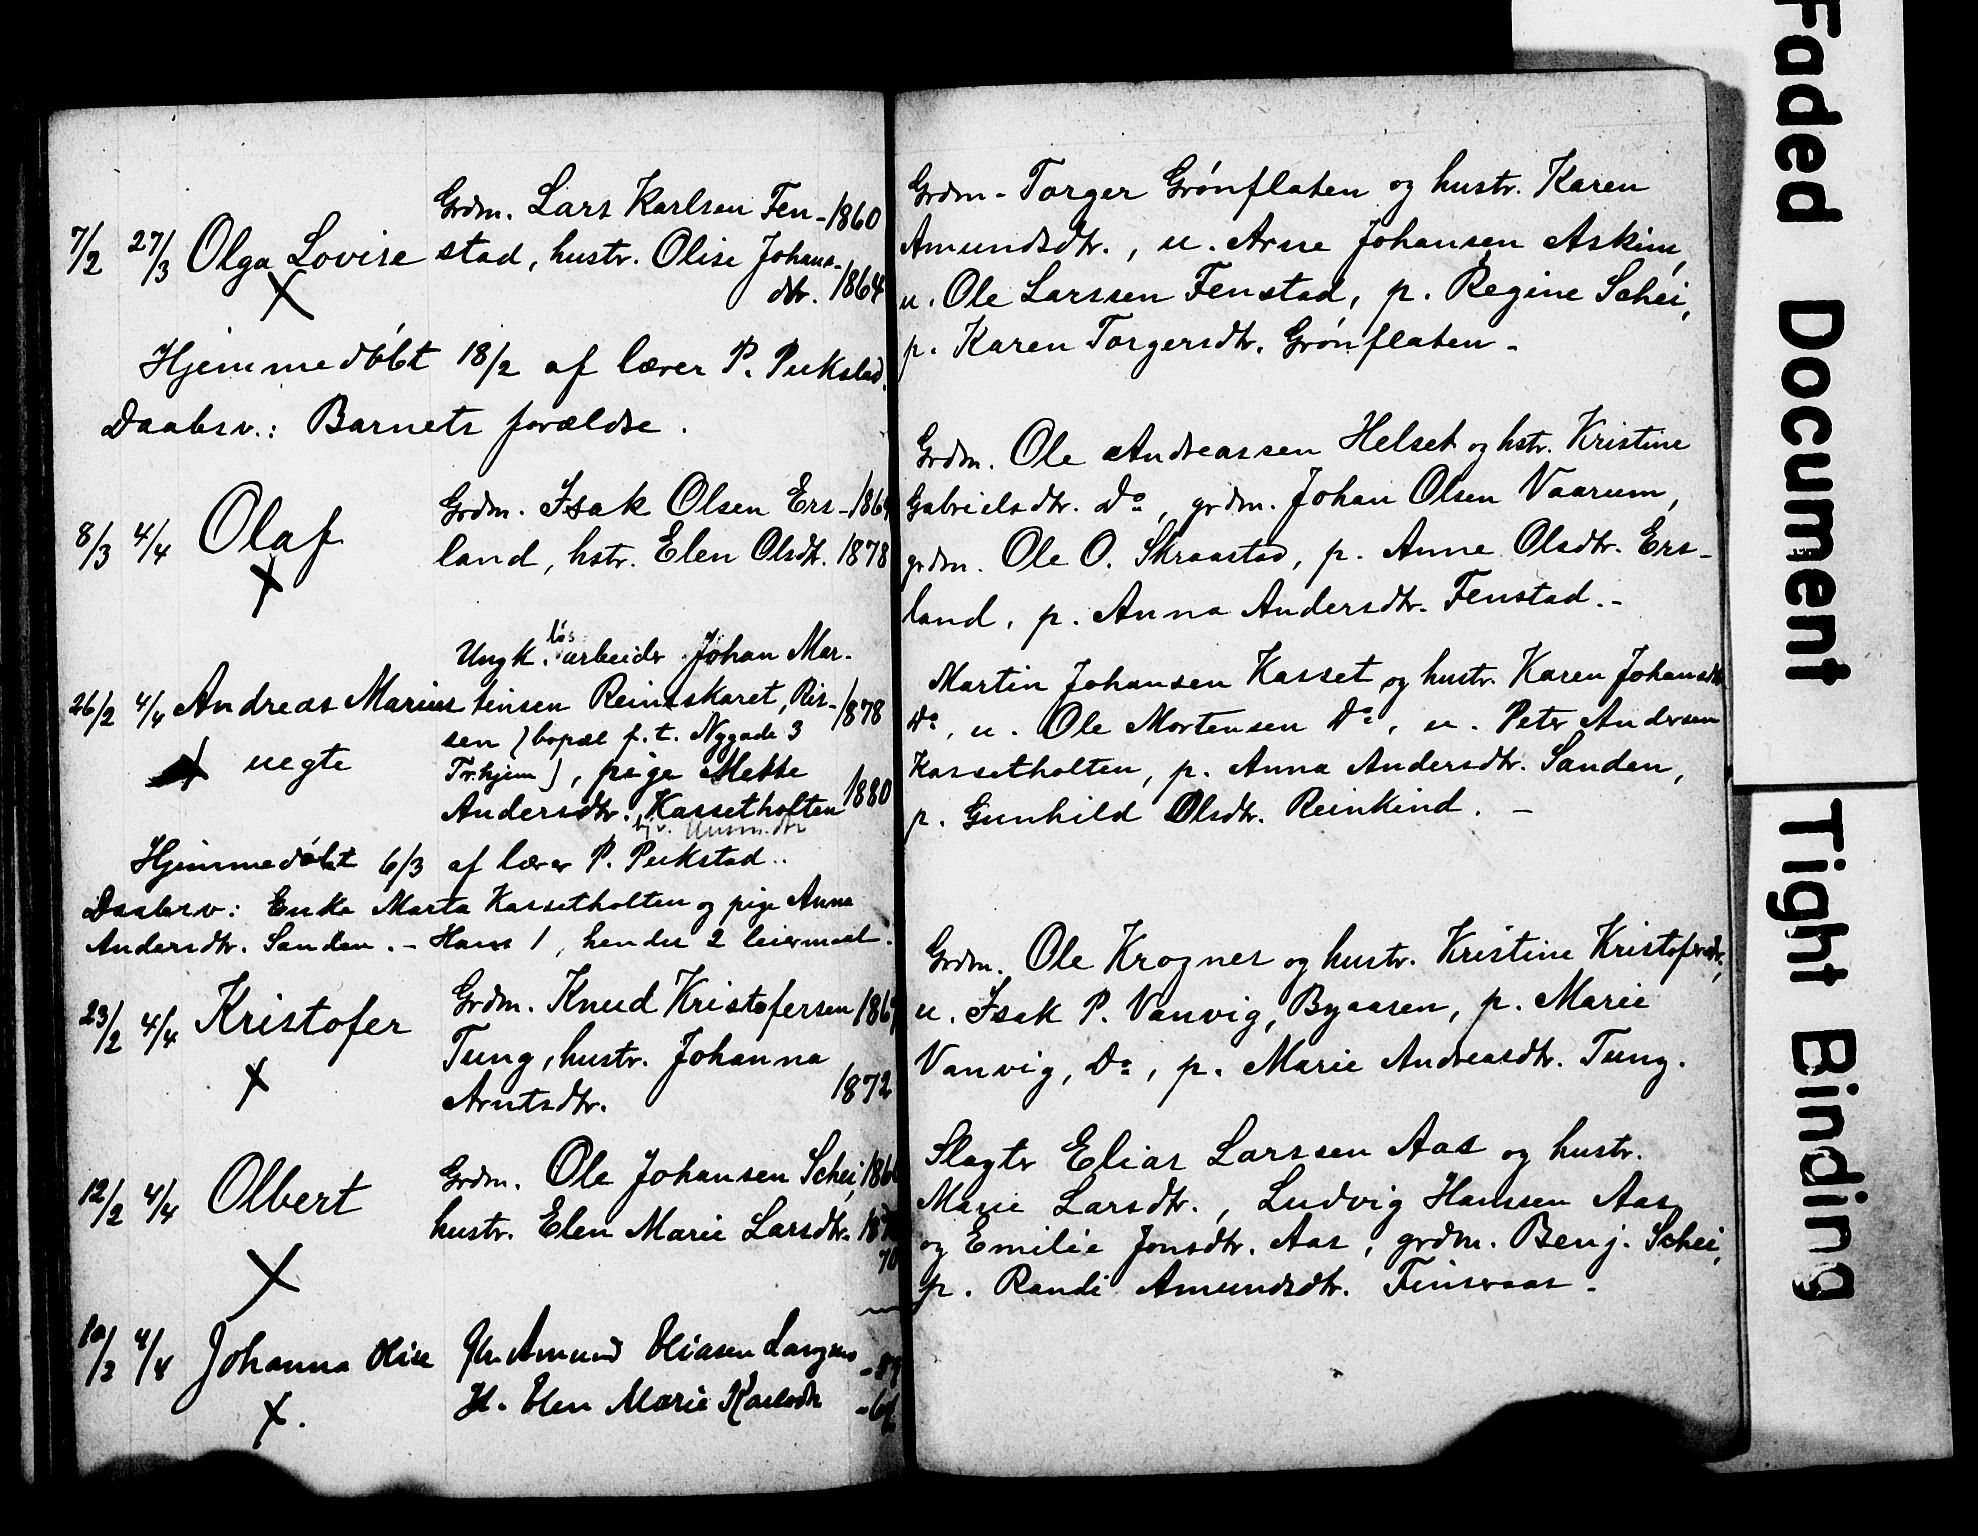 Grdm. Lars Karlsen Fen- 1860
7/2 27/3 Olga Lovise stad, hustr. Olise Johans-
X dtr. 1864
Hjemmedöbt 18/2 af lærer P. Pukstad.
Daabsv.: Barnets forældre.
Grdm. Isak Olsen Ers-
8/3 4/4 Olaf land, hstr. Elen Olsdt. 1878
X
Ungk. løsarbeider Johan Mar-
26/2 4/4 Andreas Marius tinsen Reinsskaret, Ris- 1878
sen (bopæl p.t. Nygade 3
uegte Tr.hjem), pige Mette
Andersdtr. Kassetholten 1880
Hjemmedöbt 6/3 af lærer P. Pukstad..
Daabsv: Enke Marta Kassetholten og pige Anna
Andersdtr. Sanden. - Hans 1, hendes 2 leiermaal.
Grdm. Knud Kristofersen
23/2 4/4 Kristofer Tung, hustr. Johanna
X Arntsdtr. 1872
Grdm. Ole Johansen Schei,
12/2 4/4 Olbert hustr. Elen Marie Larsdtr.
70
X
4/4 Johanna Olise Amund Eliasen
X. H. Elen Marie Karlsdtr
Grdm - Torger Grönflaten og hustr. Karen
Amundsdtr., u. Arne Johansen Askim,
u. Ole Larssen Fenstad, p. Regine Schei,
p. Karen Torgersdtr. Grönflaten -
Grdm. Ole Andreassen Helset og hstr. Kristine
Gabrielsdtr. Do, grdm. Johan Olsen Vaarum,
grdm. Ole O. Skraastad, p. Anne Olsdtr. Ers-
land, p. Anna Andersdtr. Fenstad.-
Martin Johansen Kasset og hustr. Karen Johansdtr
Do, u. Ole Mortensen Do, u. Peter Andersen
Kassetholten, p. Anna Andersdtr. Sanden,
p. Gunhild Olsdtr. Reinkind. -
Grdm. Ole Krognes og hustr. Kristine Kristofersdtr,
u. Isak P. Vanvig, Byaasen, p. Marie
Vanvig, Do, p. Marie Andreasdtr. Tung.
Slagter Elias Larssen Aas og hustr.
Marie Larsdtr., Ludvig Hanssen Aas
og Emilie Jonsdtr. Aas, grdm. Benj. Schei,
p. Randi Amundsdtr. Finsraas -
Faded Document
Tight Binding